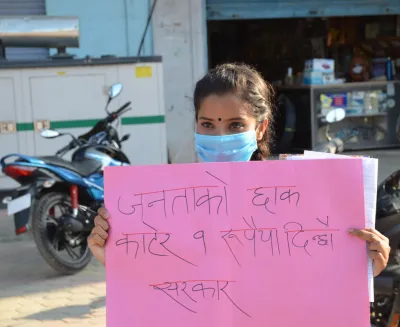 जनताको छाक
काटेर १ रूपैया दिन्छौ
सरकार